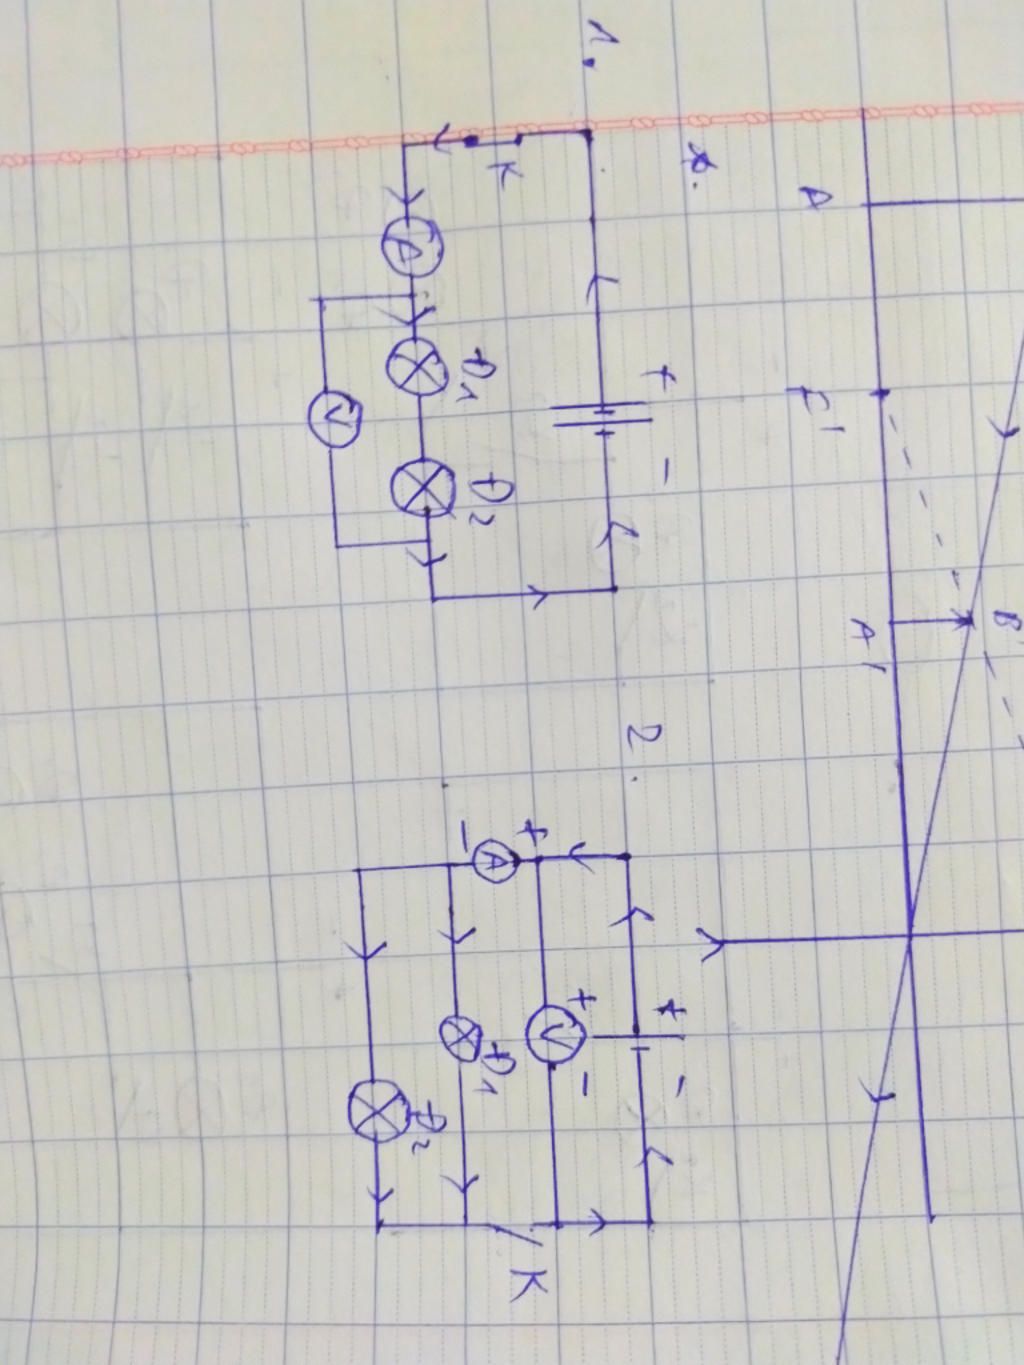 B'
A F' A'
1.
+ -
K
Đ1 Đ2
A
V
2.
+ -
+ V -
A K
-
Đ1
Đ2